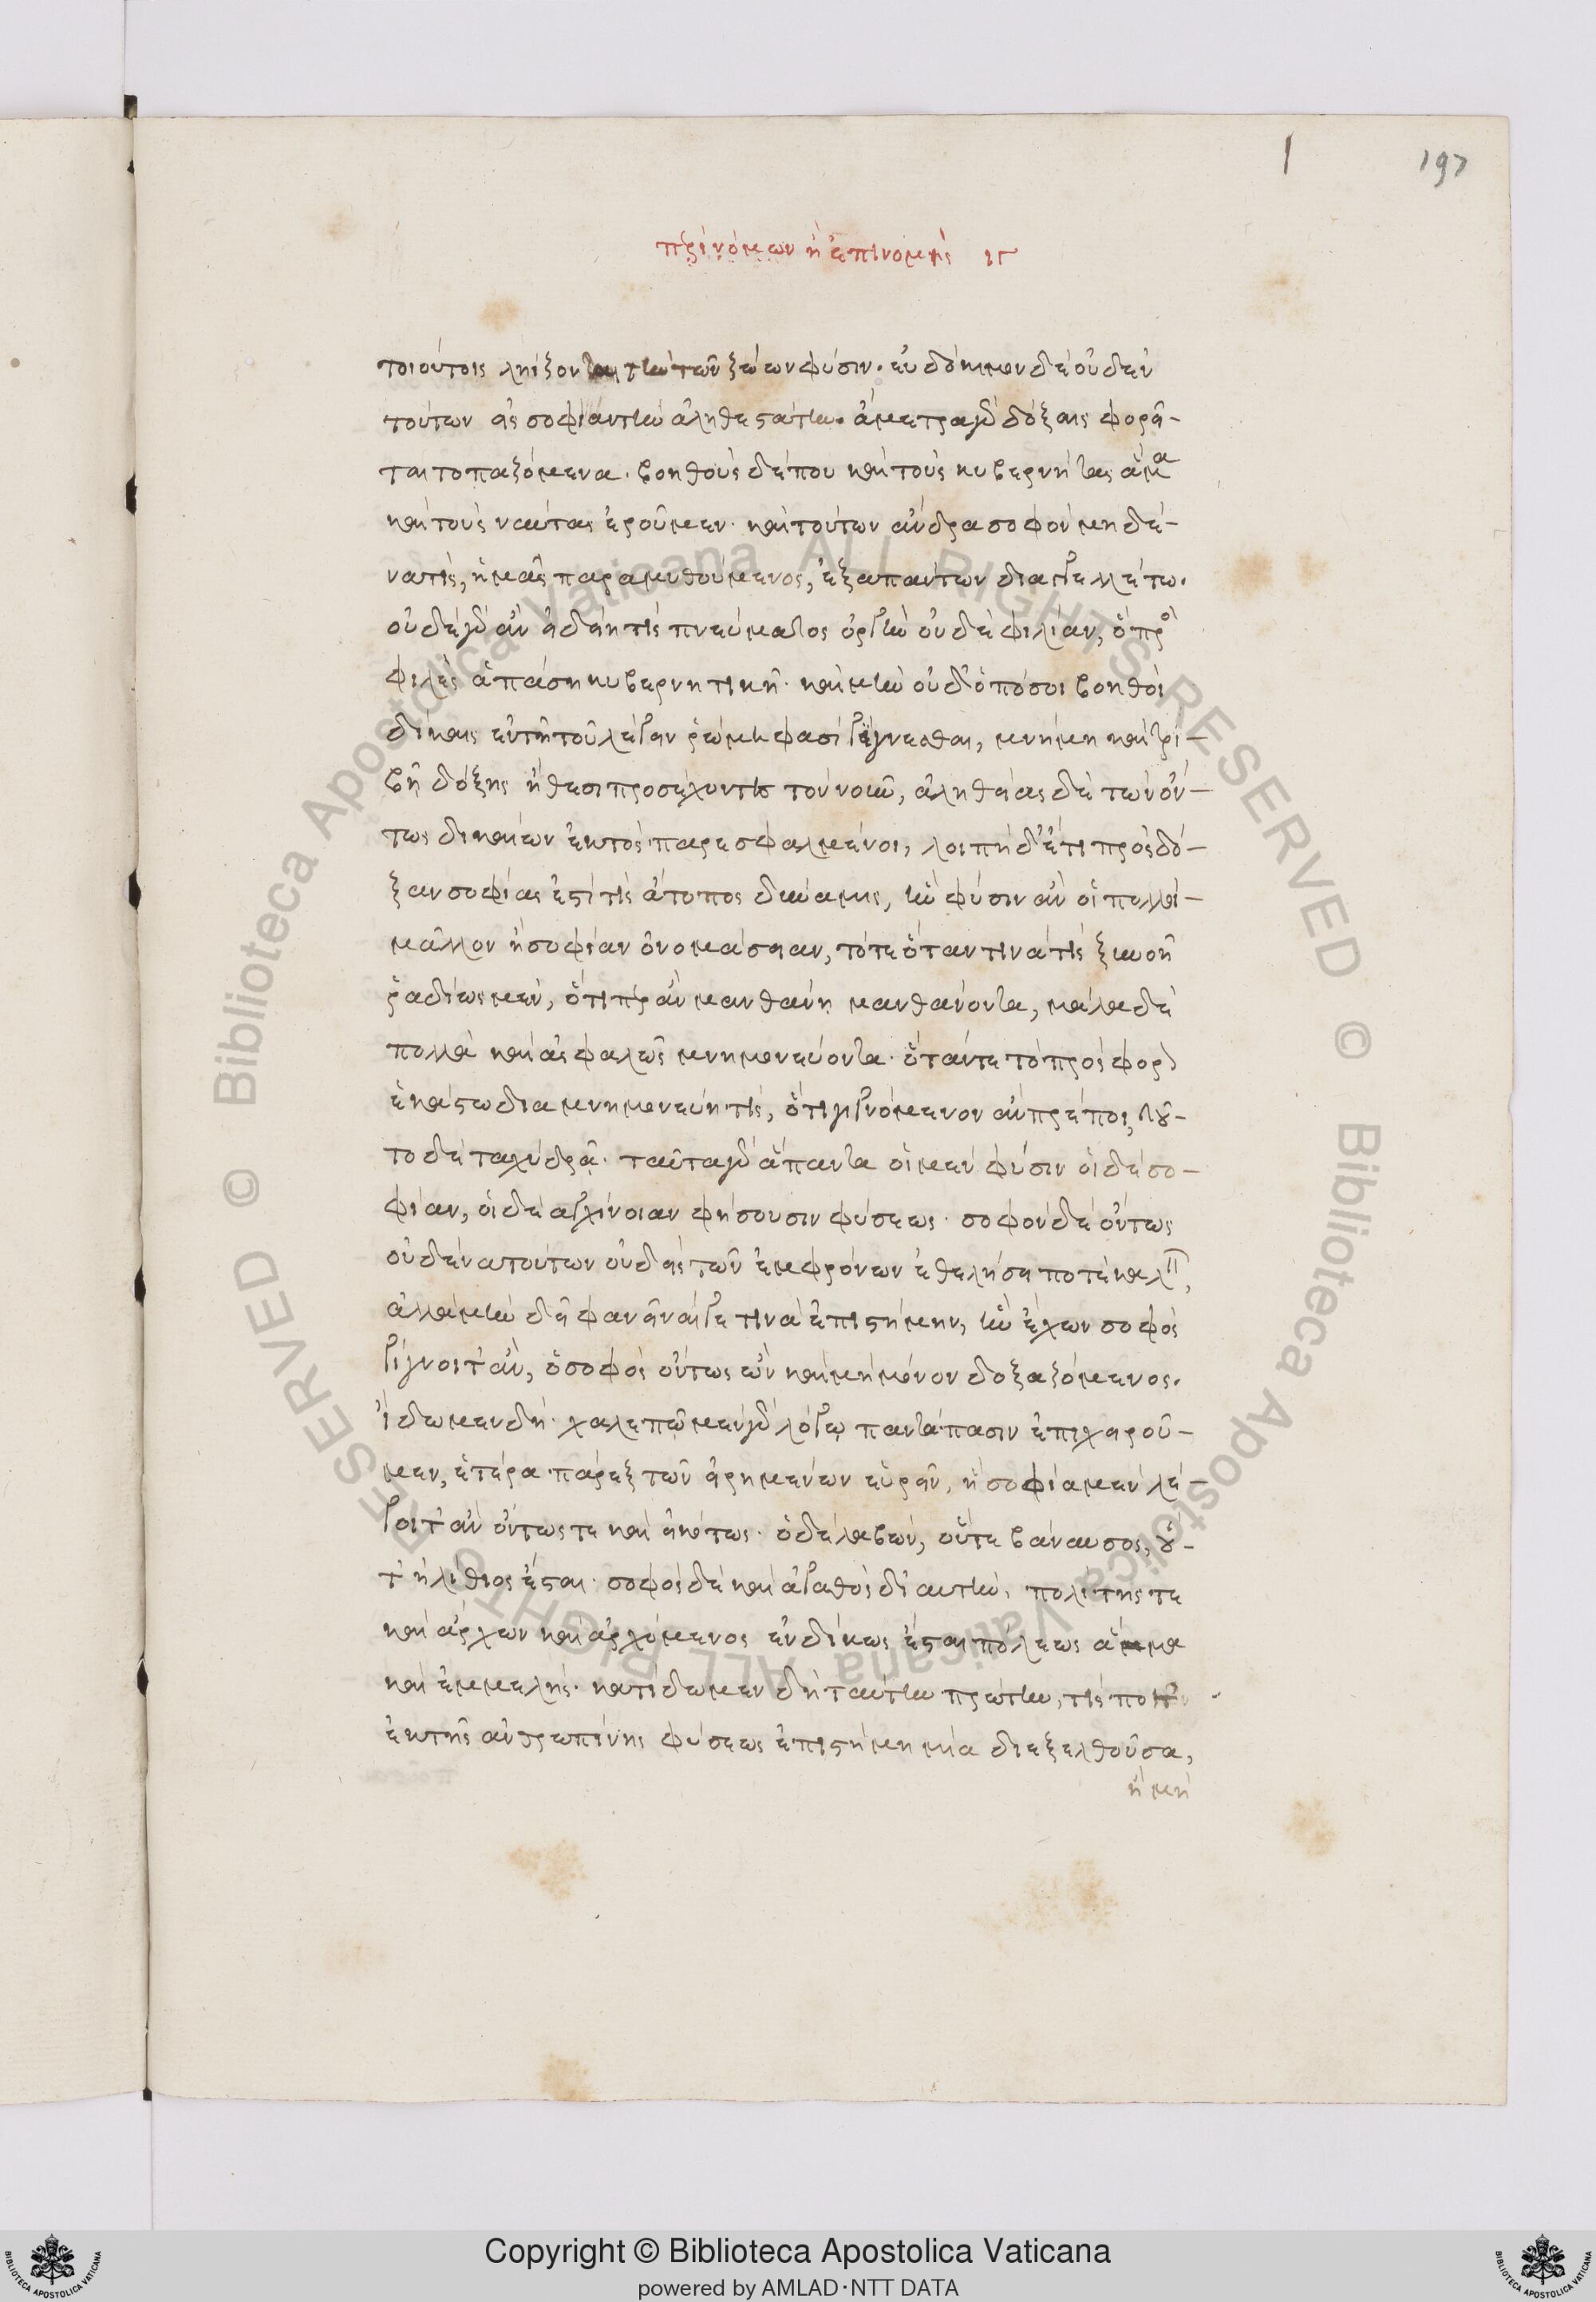 197
περὶ νόμων ἢ ἐπινομὶς ιγ
τοιούτοις λῄζονται τὴν τῶν ζώων φύσιν. εὐδόκιμον δὲ οὐδὲν
τούτων εἰς σοφίαν τὴν ἀληθεστάτην. ἄμετρα γὰρ δόξαις φορεῖ-
ται τοπαζόμενα. βοηθοὺς δέ που καὶ τοὺς κυβερνήτας ἅμα
καὶ τοὺς ναύτας ἐροῦμεν. καὶ τούτων ἄνδρα σοφὸν μηδέ-
να τὶς, ἡμᾶς παραμυθούμενος, ἐξ ἁπάντων διαγγελλέτω.
οὐδὲ γὰρ ἂν εἰδείη τὶς πνεύματος ὀργὴν οὐδὲ φιλίαν, ὃ προσ
φιλὲς ἁπάσῃ κυβερνητικῇ. καὶ μὴν οὐδ' ὁπόσοι βοηθοὶ
δίκαις ἐν τῇ τοῦ λέγειν ῥώμῃ φασὶ γίγνεσθαι, μνήμῃ καὶ τρι-
βῇ δόξης ἤθεσι προσέχοντες τὸν νοῦν, ἀληθείας δὲ τῶν ὄν-
τως δικαίων ἐκτὸς παρεσφαλμένοι, λοιπὴ δ' ἔτι πρὸς δό-
ξαν σοφίας ἐστί τις ἄτοπος δύναμις, ἣν φύσιν ἂν οἱ πολλοὶ
μᾶλλον ἢ σοφίαν ὀνομάσειαν, τότε ὅταν τινά τις ξυννοῇ
ῥᾳδίως μὲν, ὅτιπερ ἂν μανθάνῃ μανθάνοντα, μάλα δὲ
πολλὰ καὶ ἀσφαλῶς μνημονεύοντα. ὅταν τε τὸ πρόσφορον
ἑκάστῳ διαμνημονεύῃ τις, ὅτι γιγνόμενον ἂν πρέποι, τοῦ-
το δὲ ταχὺ δρᾷ. ταῦτα γὰρ ἅπαντα οἱ μὲν φύσιν οἱ δὲ σο-
φίαν, οἱ δὲ ἀγχίνοιαν φήσουσιν φύσεως. σοφὸν δὲ ὄντως
οὐδένα τούτων οὐδεὶς τῶν ἐμφρόνων ἐθελήσει ποτὲ καλεῖν,
ἀλλὰ μὴν δεῖ φανῆναί γε τινὰ ἐπιστήμην, ἣν ἔχων σοφὸς
γίγνοιτ' ἂν, ὁ σοφὸς ὄντως ὢν καὶ μὴ μόνον δοξαζόμενος.
ἴδωμεν δή. χαλεπῷ μὲν γὰρ λόγῳ παντάπασιν ἐπιχειροῦ-
μεν, ἑτέρα πάρεξ τῶν εἰρημένων εὑρεῖν, ἡ σοφία μὲν λέ-
γοιτ' ἂν ὄντως τε καὶ εἰκότως. ὁ δὲ λαβὼν, οὔτε βάναυσος, οὔ-
τ' ἠλίθιος ἔσται. σοφὸς δὲ καὶ ἀγαθὸς δι' αὐτὴν, πολίτης τε
καὶ ἄρχων καὶ ἀρχόμενος ἐνδίκως ἔσται πόλεως ἅμα
καὶ ἐμμελής. κατίδωμεν δὴ ταύτην πρώτην, τίς ποτ'
ἐκ τῆς ἀνθρωπίνης φύσεως ἐπιστήμη μία διεξελθοῦσα,
ἢ μὴ
© Biblioteca Apostolica Vaticana ALL RIGHTS RESERVED
© Biblioteca Apostolica Vaticana ALL RIGHTS RESERVED
Copyright © Biblioteca Apostolica Vaticana
powered by AMLAD·NTT DATA
BIBLIOTECA APOSTOLICA VATICANA
BIBLIOTECA APOSTOLICA VATICANA